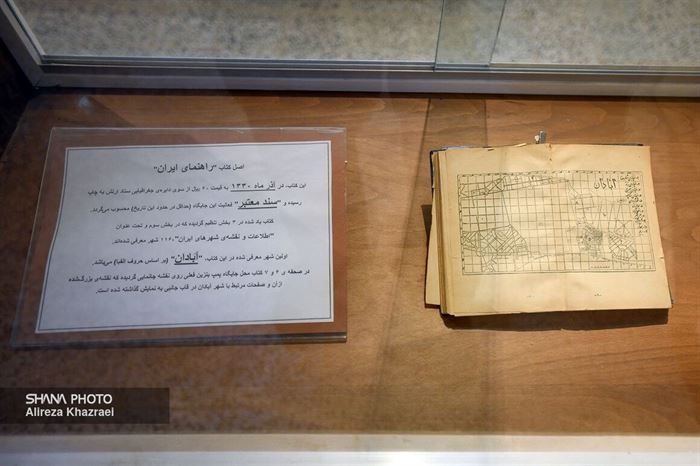 اصل کتاب "راهنمای ایران"
این کتاب، در آذر ماه ۱۳۳۰ به قیمت ۶۰ ریال از سوی دایره‌ی جغرافیایی ستاد ارتش به چاپ
رسیده و "سند معتبر" فعالیت این جایگاه (حداقل در حدود این تاریخ) محسوب می‌گردد.
کتاب یاد شده در ۳ بخش تنظیم گردیده که در بخش سوم و تحت عنوان
"اطلاعات و نقشه‌ی شهرهای ایران"، ۱۱۶ شهر معرفی شده‌اند.
اولین شهر معرفی شده در این کتاب، "آبادان" (بر اساس حروف الفبا) می‌باشد.
در صفحه‌ی ۶ و ۷ کتاب محل جایگاه پمپ بنزین فعلی روی نقشه جانمایی گردیده که نقشه‌ی بزرگ‌شده
ازآن و صفحات مرتبط با شهر آبادان در قاب جانبی به نمایش گذاشته شده است.
آبادان
SHANA PHOTO
Alireza Khazraei